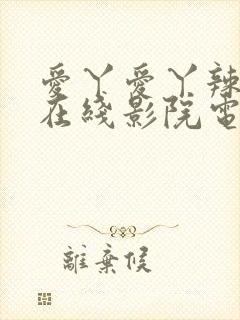 愛丫愛丫辣
在綫影院電
離棄候